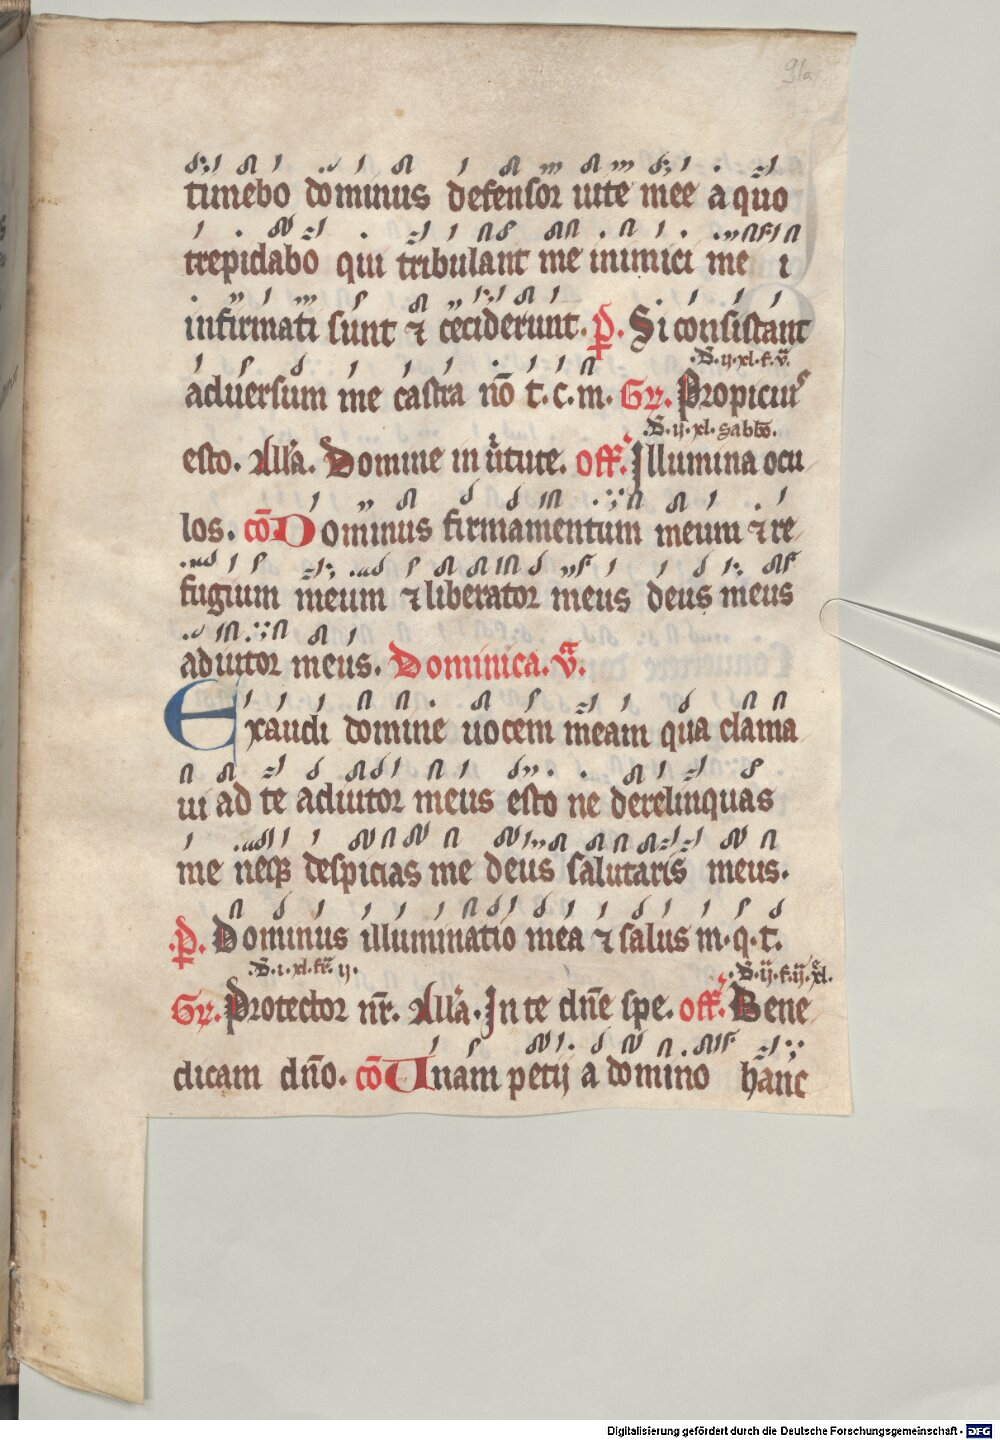 91a
timebo dominus defensor uite mee a quo
trepidabo qui tribulant me inimici me i
infirmati sunt ⁊ ceciderunt. p̅s. Si consistant
.S. ij. xl. f. v.
aduersum me castra nō t. c. m. Gr. Propicius
.S. ij. xl. sabbō.
esto. All'a. Domine in u̇tute. off. Illumina ocu
los. cō Dominus firmamentum meum ⁊ re
fugium meum ⁊ liberator meus deus meus
adiutor meus. Dominica. v̇ᵃ.
Exaudi domine uocem meam qua clama
ui ad te adiutor meus esto ne derelinquas
me neqꝫ despicias me deus salutaris meus.
.p̅s. Dominus illuminatio mea ⁊ salus m. q. t.
.S. i. xl. fr. ij. .S. ij. f. ij. xl.
Gr. Protector nr̄. All'a. In te dn̄e spe. off. Bene
dicam dn̄o. cō Unam petij a domino hanc
Digitalisierung gefördert durch die Deutsche Forschungsgemeinschaft - DFG